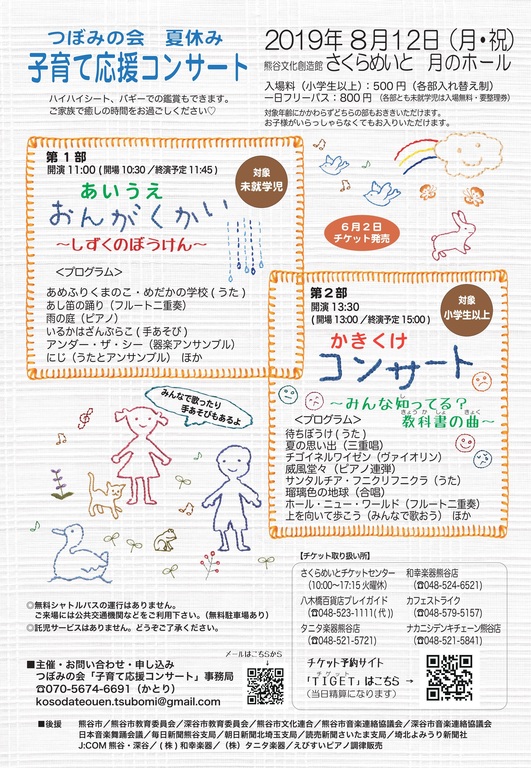 つぼみの会　夏休み
子育て応援コンサート
ハイハイシート、バギーでの鑑賞もできます。
ご家族で癒しの時間をお過ごしください♡
2019年 8月12日（月・祝）
熊谷文化創造館 さくらめいと 月のホール
入場料（小学生以上）：500円（各部入れ替え制）
一日フリーパス：800円 （各部とも未就学児は入場無料・要整理券）
対象年齢にかかわらずどちらの部もおききいただけます。
お子様がいらっしゃらなくてもお入りいただけます。
第1部
開演 11:00（開場 10:30／終演予定 11:45）
対象
未就学児
あいうえ
おんがくかい
～しずくのぼうけん～
＜プログラム＞
あめふりくまのこ・めだかの学校（うた）
あし笛の踊り（フルート二重奏）
雨の庭（ピアノ）
いるかはざんぶらこ（手あそび）
アンダー・ザ・シー（器楽アンサンブル）
にじ（うたとアンサンブル） ほか
6月2日
チケット発売
第2部
開演 13:30
（開場 13:00／終演予定 15:00）
対象
小学生以上
かきくけ
コンサート
～みんな知ってる？
きょうかしょ きょく
教科書の曲～
＜プログラム＞
待ちぼうけ（うた）
夏の思い出（三重唱）
チゴイネルワイゼン（ヴァイオリン）
威風堂々（ピアノ連弾）
サンタルチア・フニクリフニクラ（うた）
瑠璃色の地球（合唱）
ホール・ニュー・ワールド（フルート二重奏）
上を向いて歩こう（みんなで歌おう） ほか
みんなで歌ったり
手あそびもあるよ
◎無料シャトルバスの運行はありません。
ご来場には公共交通機関などをご利用下さい。（無料駐車場あり）
◎託児サービスはありません。どうぞご了承ください。
【チケット取り扱い所】
さくらめいとチケットセンター
（10:00～17:15 火曜休）
八木橋百貨店プレイガイド
（☎048-523-1111(代)）
タニタ楽器熊谷店
（☎048-521-5721）
和幸楽器熊谷店
（☎048-524-6521）
カフェストライク
（☎048-579-5157）
ナカニシデンキチェーン熊谷店
（☎048-521-5841）
■主催・お問い合わせ・申し込み
つぼみの会「子育て応援コンサート」事務局
☎070-5674-6691（かとり）
kosodateouen.tsubomi@gmail.com
メールはこちらから
チケット予約サイト
チゲット
「TIGET」はこちら →
（当日精算になります）
■後援　熊谷市／熊谷市教育委員会／深谷市教育委員会／熊谷市文化連合／熊谷市音楽連絡協議会／深谷市音楽連絡協議会
日本音楽舞踊会議／毎日新聞熊谷支局／朝日新聞北埼玉支局／読売新聞さいたま支局／埼北よみうり新聞社
J:COM 熊谷・深谷／（株）和幸楽器／（株）タニタ楽器／えびすいピアノ調律販売